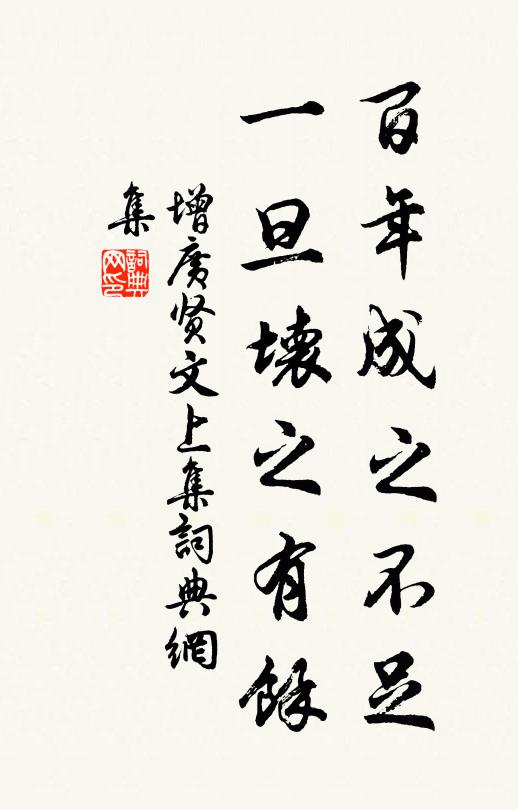 百年成之不足
一旦壞之有餘
增廣贤文上集詞典網
集
詞典网印